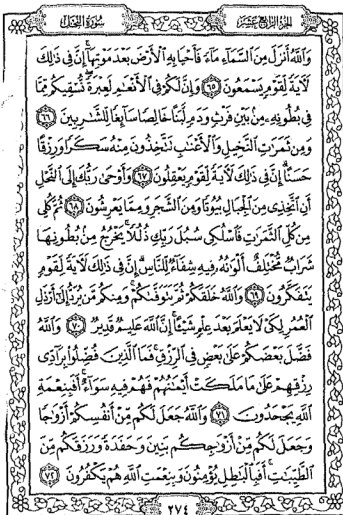 الجزء الرابع عشر
سورة النحل
وَاللَّهُ أَنزَلَ مِنَ السَّمَاءِ مَاءً فَأَحْيَا بِهِ الْأَرْضَ بَعْدَ مَوْتِهَا إِنَّ فِي ذَٰلِكَ
لَآيَةً لِّقَوْمٍ يَسْمَعُونَ ٦٥ وَإِنَّ لَكُمْ فِي الْأَنْعَٰمِ لَعِبْرَةً نُّسْقِيكُم مِّمَّا
فِي بُطُونِهِ مِنۢ بَيْنِ فَرْثٍ وَدَمٍ لَّبَنًا خَالِصًا سَآئِغًا لِّلشَّٰرِبِينَ ٦٦
وَمِن ثَمَرَٰتِ النَّخِيلِ وَالْأَعْنَٰبِ تَتَّخِذُونَ مِنْهُ سَكَرًا وَرِزْقًا
حَسَنًا إِنَّ فِي ذَٰلِكَ لَآيَةً لِّقَوْمٍ يَعْقِلُونَ ٦٧ وَأَوْحَىٰ رَبُّكَ إِلَى النَّحْلِ
أَنِ اتَّخِذِي مِنَ الْجِبَالِ بُيُوتًا وَمِنَ الشَّجَرِ وَمِمَّا يَعْرِشُونَ ٦٨ ثُمَّ كُلِي
مِن كُلِّ الثَّمَرَٰتِ فَاسْلُكِي سُبُلَ رَبِّكِ ذُلُلًا يَخْرُجُ مِنۢ بُطُونِهَا
شَرَابٌ مُّخْتَلِفٌ أَلْوَٰنُهُ فِيهِ شِفَآءٌ لِّلنَّاسِ إِنَّ فِي ذَٰلِكَ لَآيَةً لِّقَوْمٍ
يَتَفَكَّرُونَ ٦٩ وَاللَّهُ خَلَقَكُمْ ثُمَّ يَتَوَفَّىٰكُمْ وَمِنكُم مَّن يُرَدُّ إِلَىٰ أَرْذَلِ
الْعُمُرِ لِكَيْ لَا يَعْلَمَ بَعْدَ عِلْمٍ شَيْـًٔا إِنَّ اللَّهَ عَلِيمٌ قَدِيرٌ ٧٠ وَاللَّهُ
فَضَّلَ بَعْضَكُمْ عَلَىٰ بَعْضٍ فِي الرِّزْقِ فَمَا الَّذِينَ فُضِّلُوا بِرَآدِّي
رِزْقِهِمْ عَلَىٰ مَا مَلَكَتْ أَيْمَٰنُهُمْ فَهُمْ فِيهِ سَوَآءٌ أَفَبِنِعْمَةِ
اللَّهِ يَجْحَدُونَ ٧١ وَاللَّهُ جَعَلَ لَكُم مِّنْ أَنفُسِكُمْ أَزْوَٰجًا
وَجَعَلَ لَكُم مِّنْ أَزْوَٰجِكُم بَنِينَ وَحَفَدَةً وَرَزَقَكُم مِّنَ
الطَّيِّبَٰتِ أَفَبِالْبَٰطِلِ يُؤْمِنُونَ وَبِنِعْمَتِ اللَّهِ هُمْ يَكْفُرُونَ ٧٢
٢٧٤